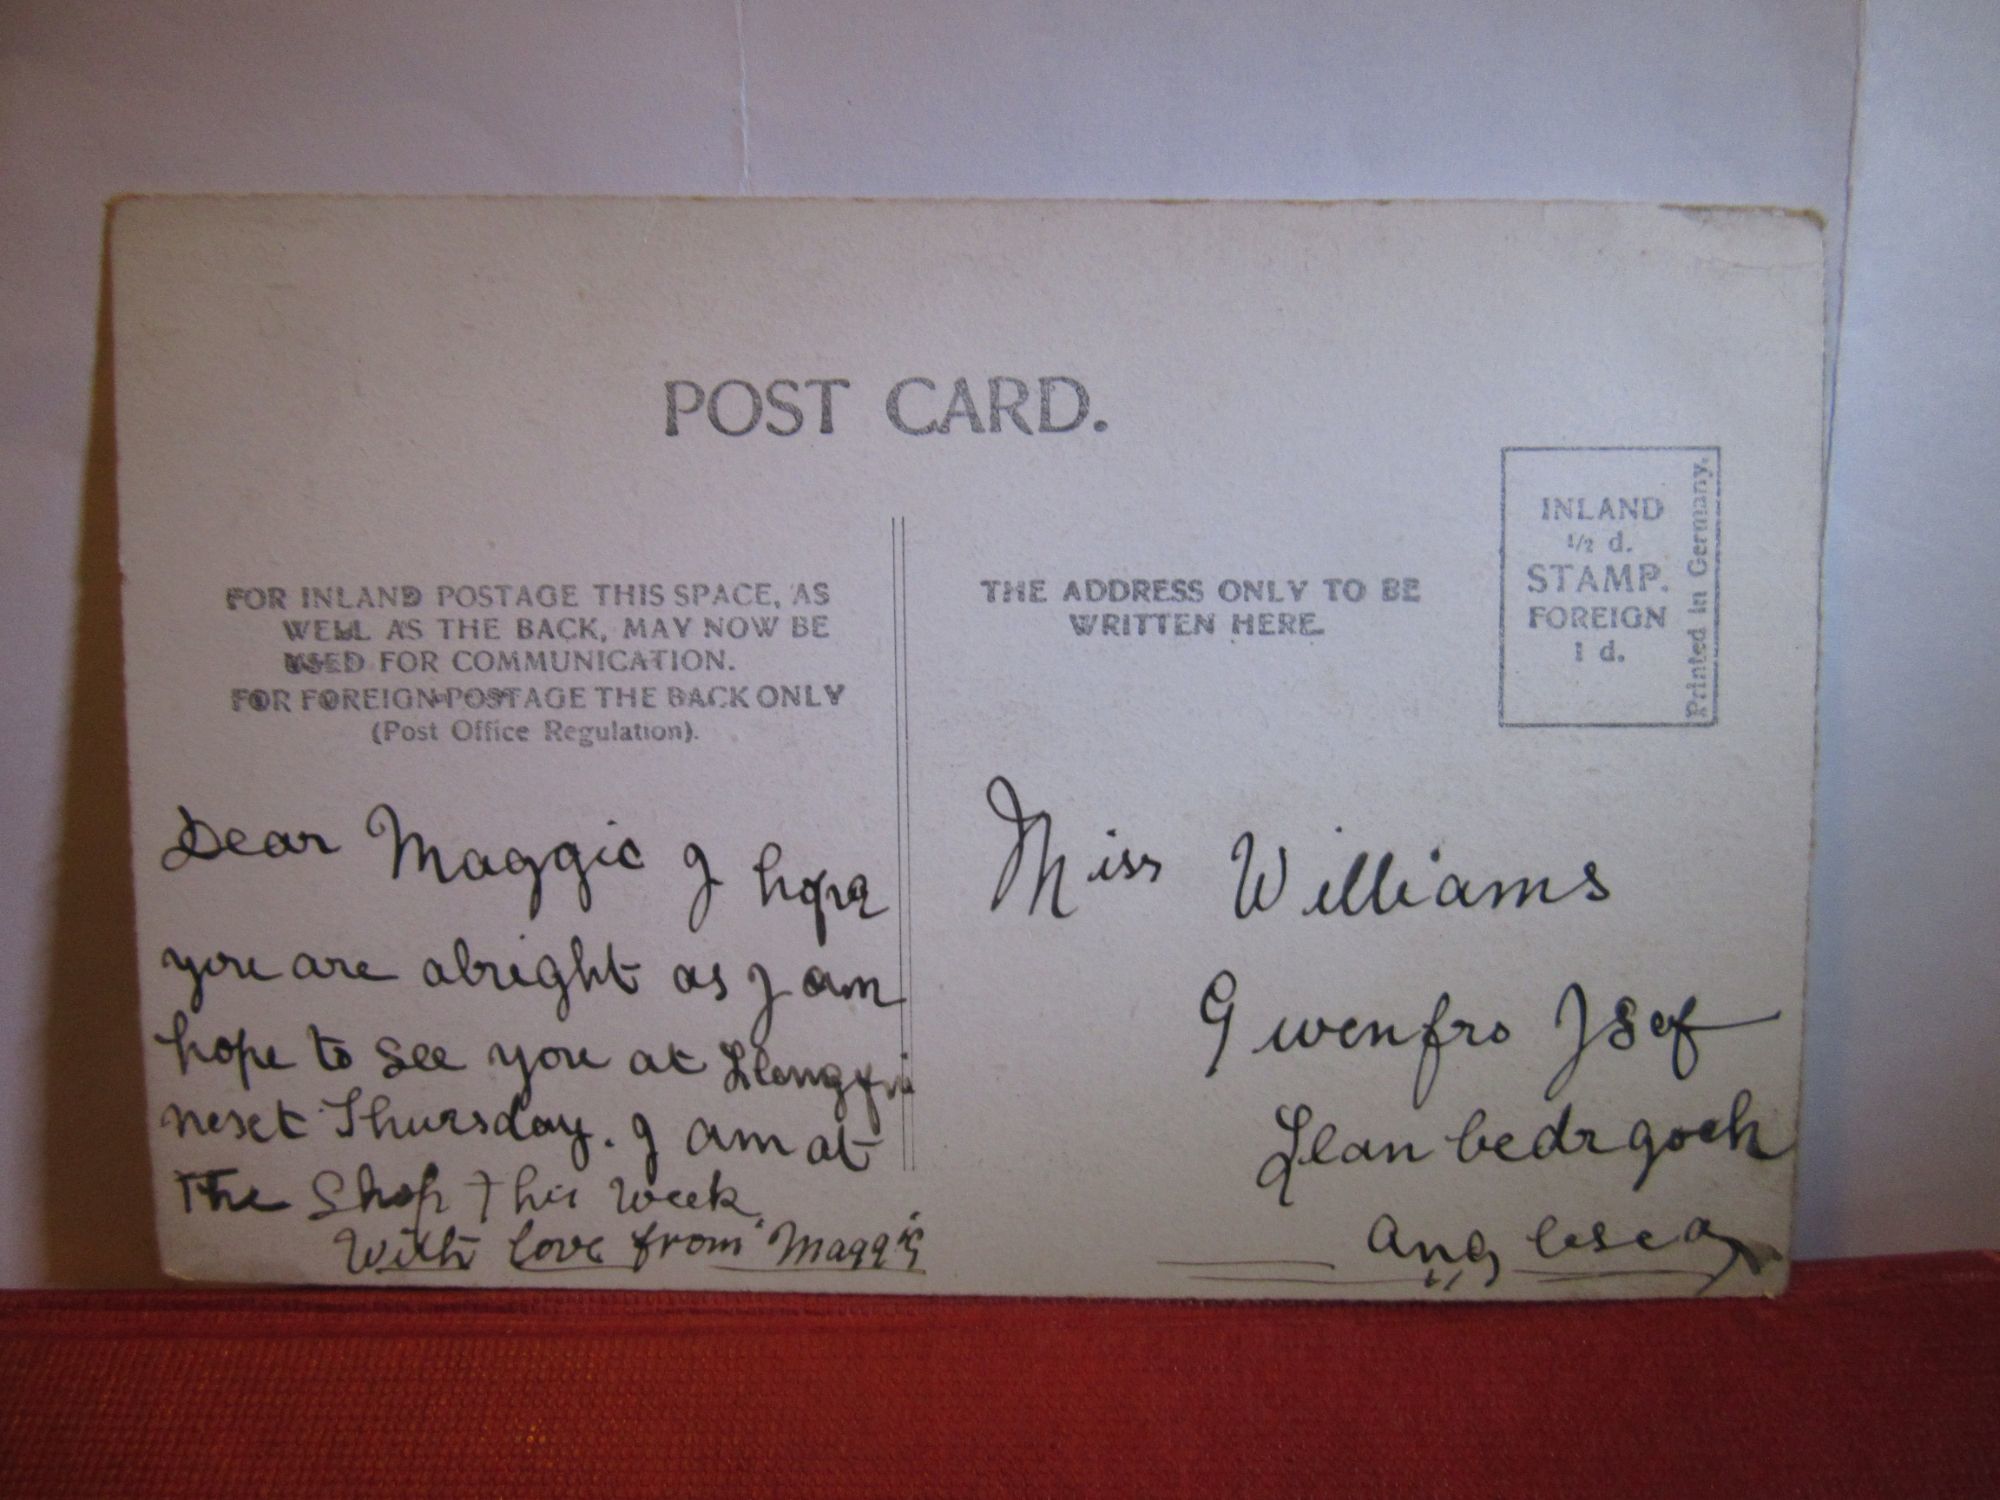 POST CARD.
FOR INLAND POSTAGE THIS SPACE, AS
WELL AS THE BACK, MAY NOW BE
USED FOR COMMUNICATION.
FOR FOREIGN POSTAGE THE BACK ONLY
(Post Office Regulation).
THE ADDRESS ONLY TO BE
WRITTEN HERE.
INLAND
1/2 d.
STAMP.
FOREIGN
1 d.
Printed in Germany.
Dear Maggie I hope
you are alright as I am
hope to see you at
next Thursday. I am at
The Shop this week
With love from Maggie
Miss Williams
Gwenfro Isef
Llanbedrgoch
Anglesea